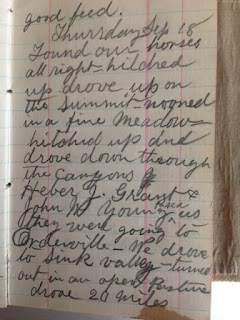 good feed.
Thursday Sep 18
Found our horses
all right - hitched
up drove up on
the Summit - nooned
in a fine Meadow -
hitched up and
drove down through
the Canyons
Heber J. Grant &
John W Young us
they were going to
Orderville - We drove
to Sink valley - turned
out in an open Pasture
drove 20 miles